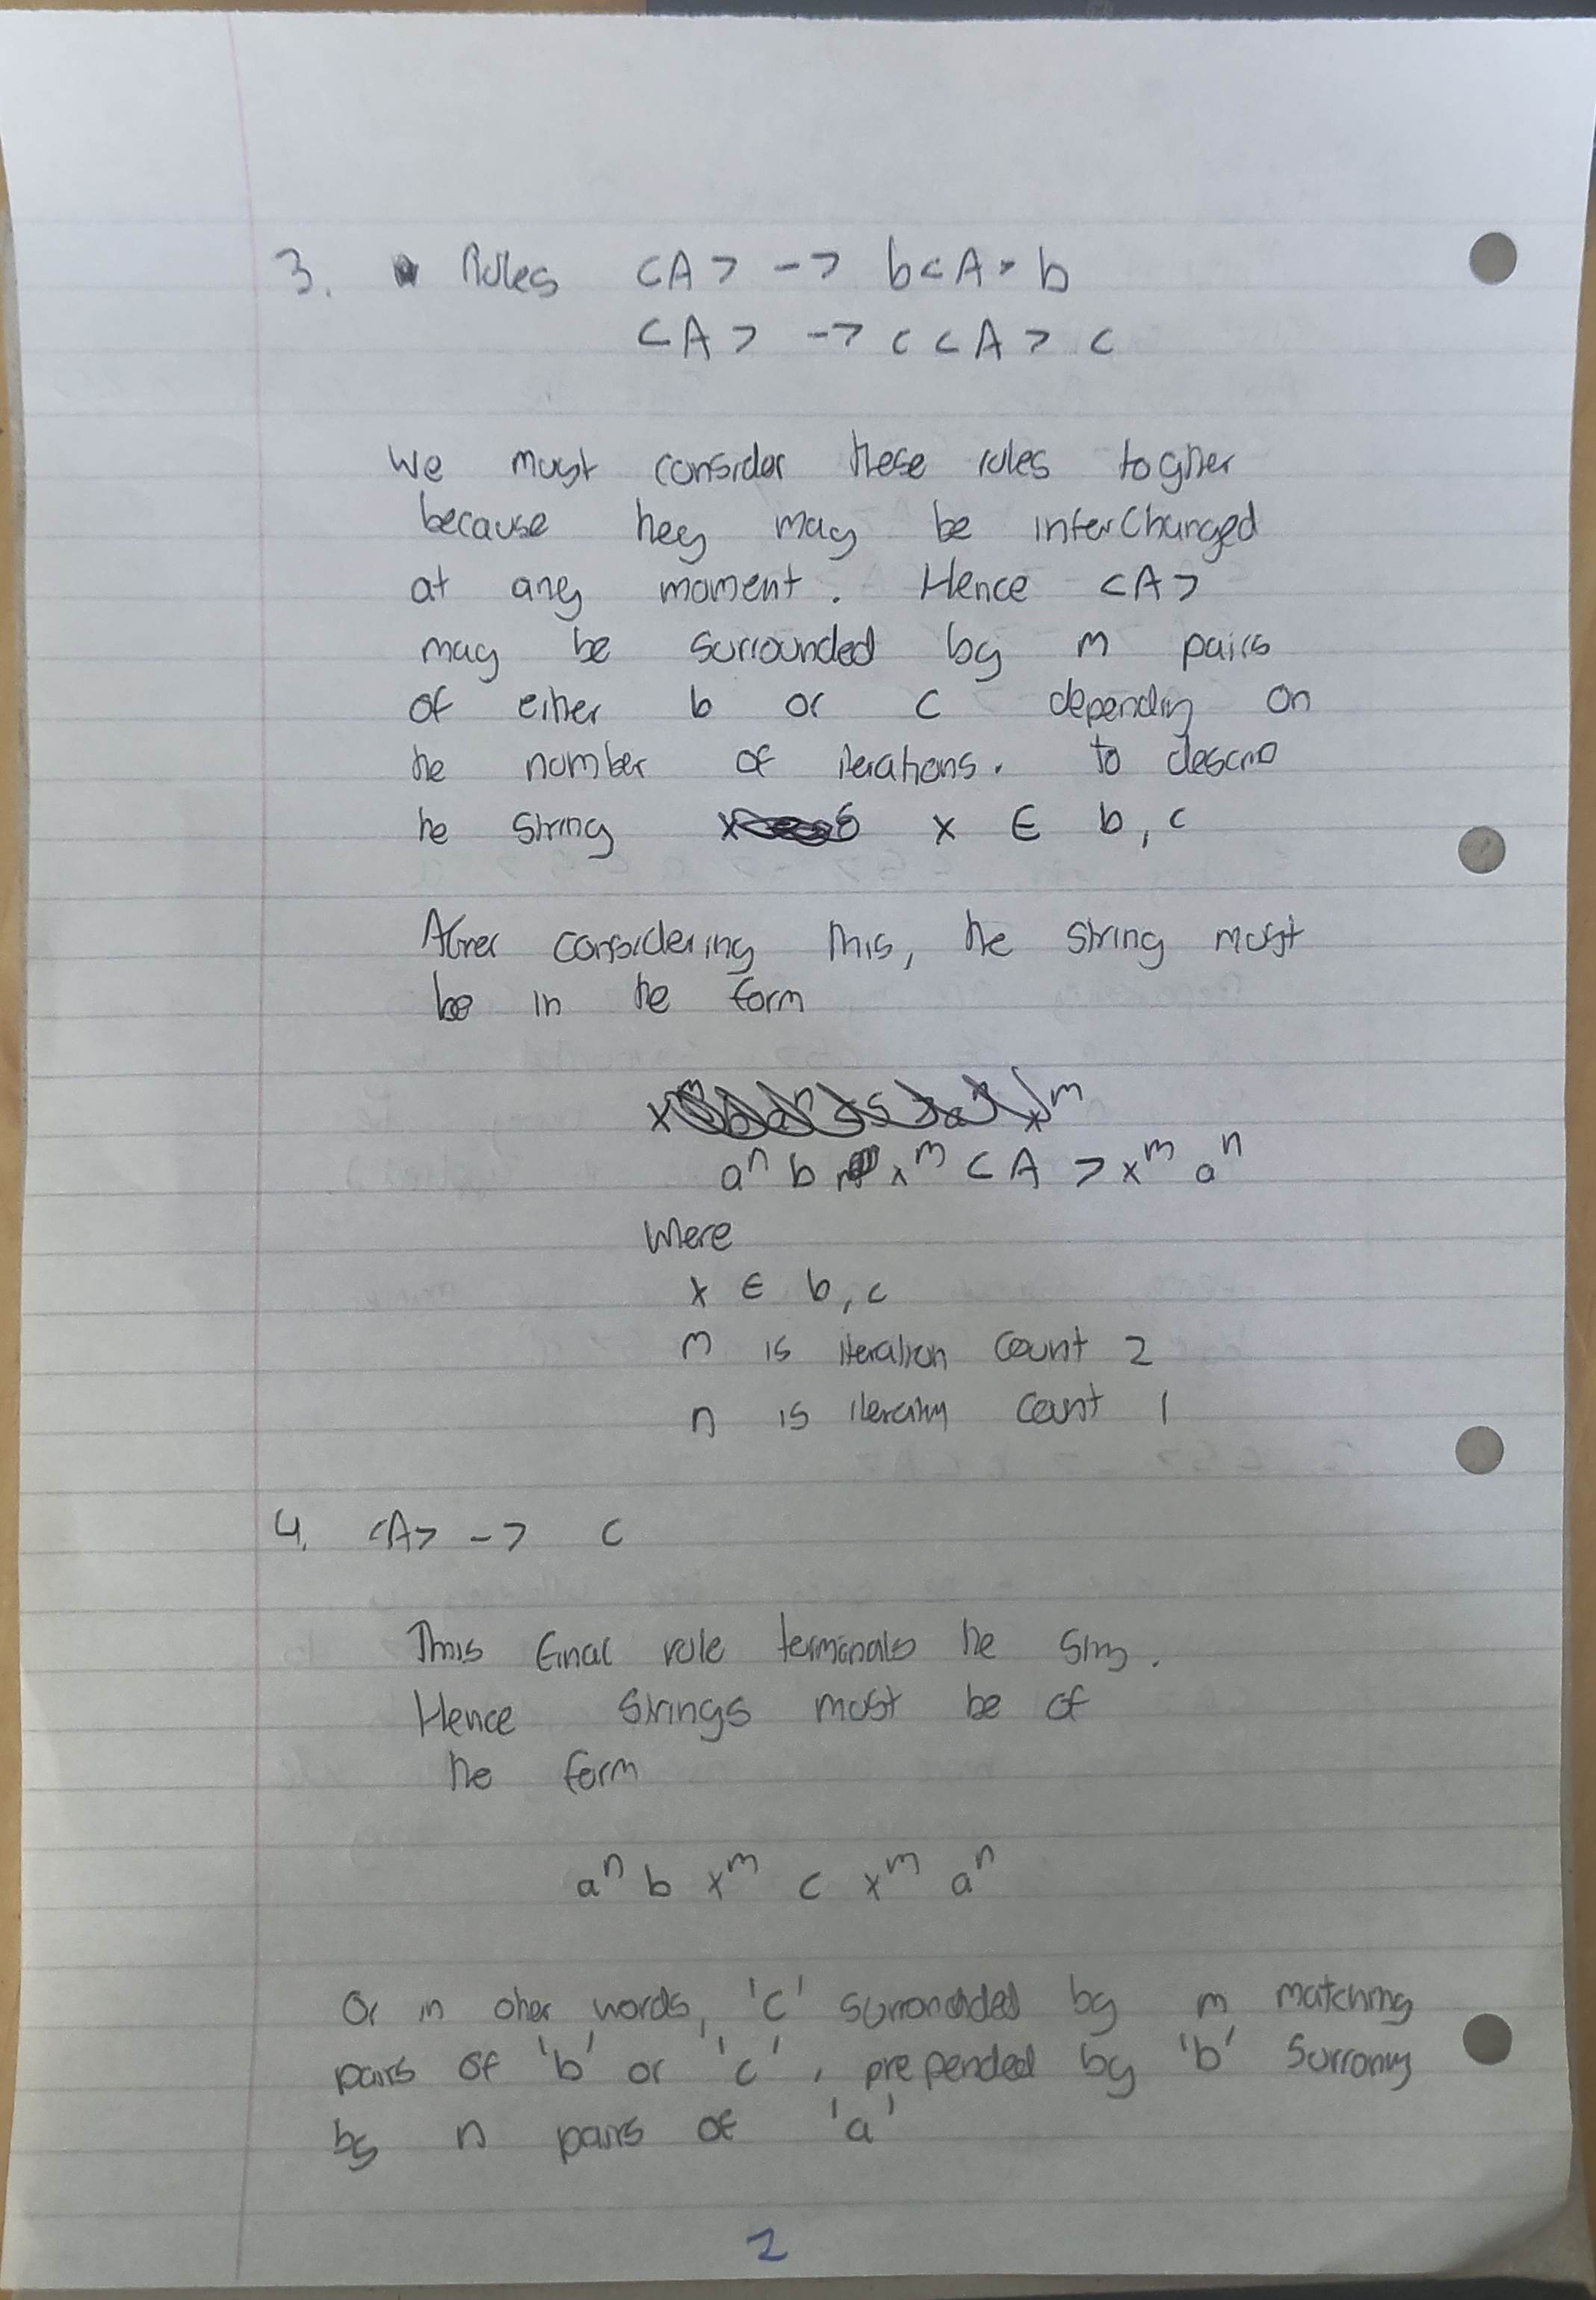 3. Rules <A> -> b<A> b
<A> -> c <A> c
We must consider these rules togher
because they may be interchanged
at any moment. Hence <A>
may be surrounded by m pairs
of either b or c depending on
the number of iterations. to
the string x ∈ b, c
After considering this, the string must
be in the form
aⁿ b xᵐ <A> xᵐ aⁿ
Where
x ∈ b, c
m is iteration count 2
n is iteration count 1
4. <A> -> c
This final rule the
Hence strings must be of
the form
aⁿ b xᵐ c xᵐ aⁿ
Or in other words, 'c' surrounded by m matching
pairs of 'b' or 'c', prepended by 'b'
by n pairs of 'a'
2